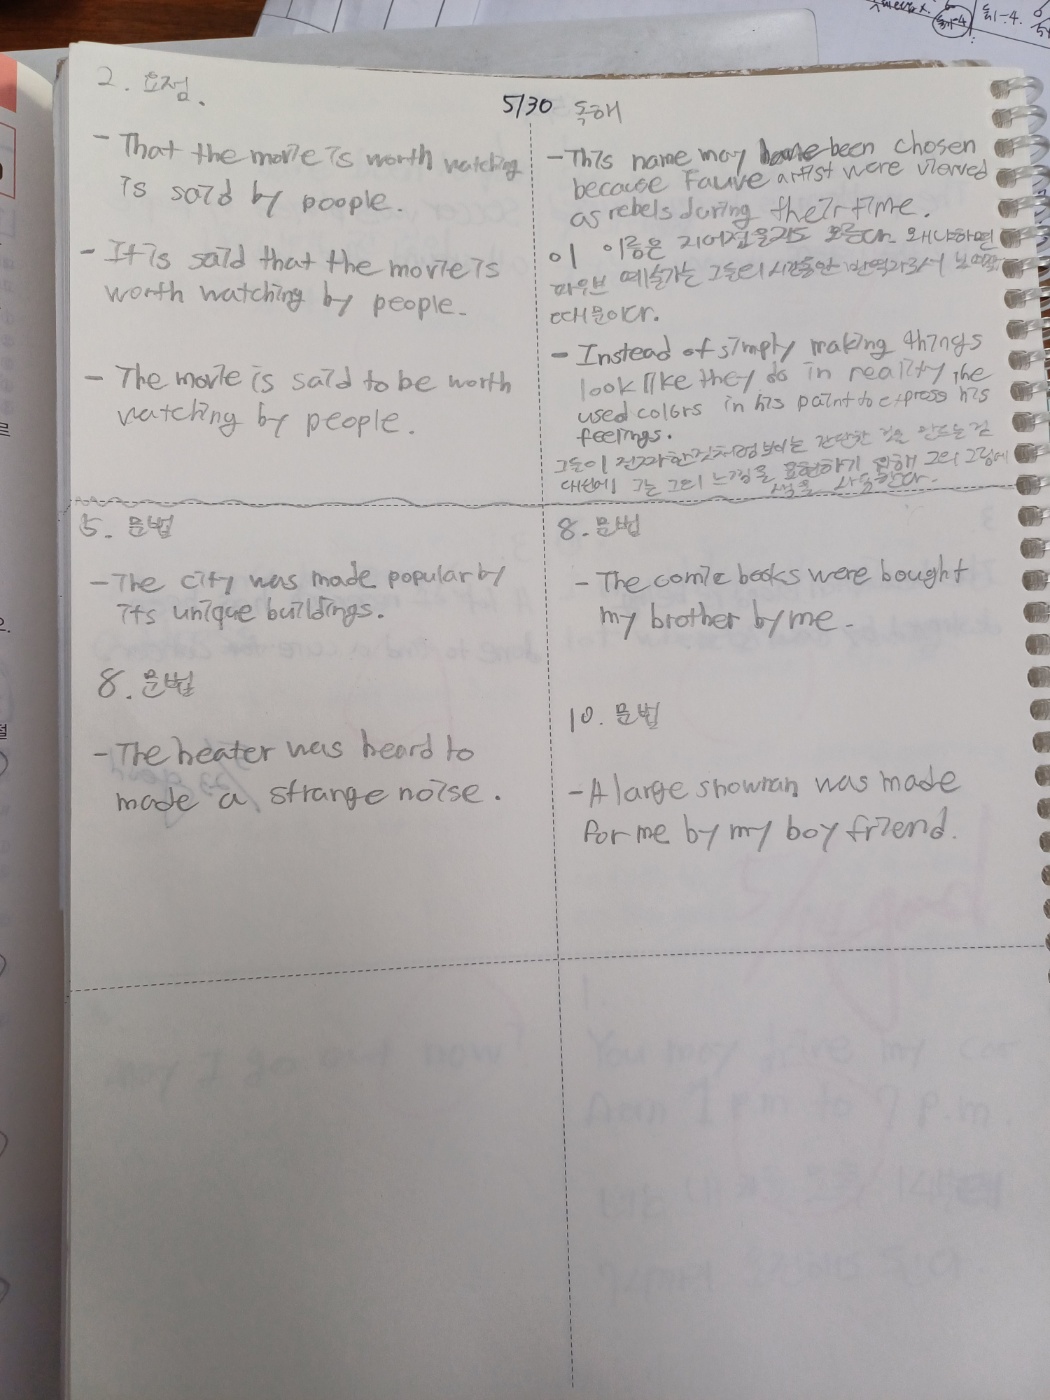 2. 요정.
- That the movie is worth watching
is said by poople.
- It is said that the movie is
worth watching by people.
- The movie is said to be worth
watching by people.
5/30 독해
- This name may have been chosen
because Fauve artist were viewed
as rebels during their time.
이 이름은 지어졌을지도 모른다. 왜냐하면
파우브 예술가는 그들의 시간동안 반역자로서
때문이다.
- Instead of simply making things
look like they do in reality, he
used colors in his paint to express his
feelings.
그들이 보이는 간단한 것을 만드는 것
대신에 그는 그의 느낌을 표현하기 위해 그의 그림에
색을 사용한다.
5. 문법
- The city was made popular by
its unique buildings.
8. 문법
- The heater was heard to
made a strange noise.
8. 문법
- The comic books were bought
my brother by me.
10. 문법
- A large snowman was made
for me by my boy friend.